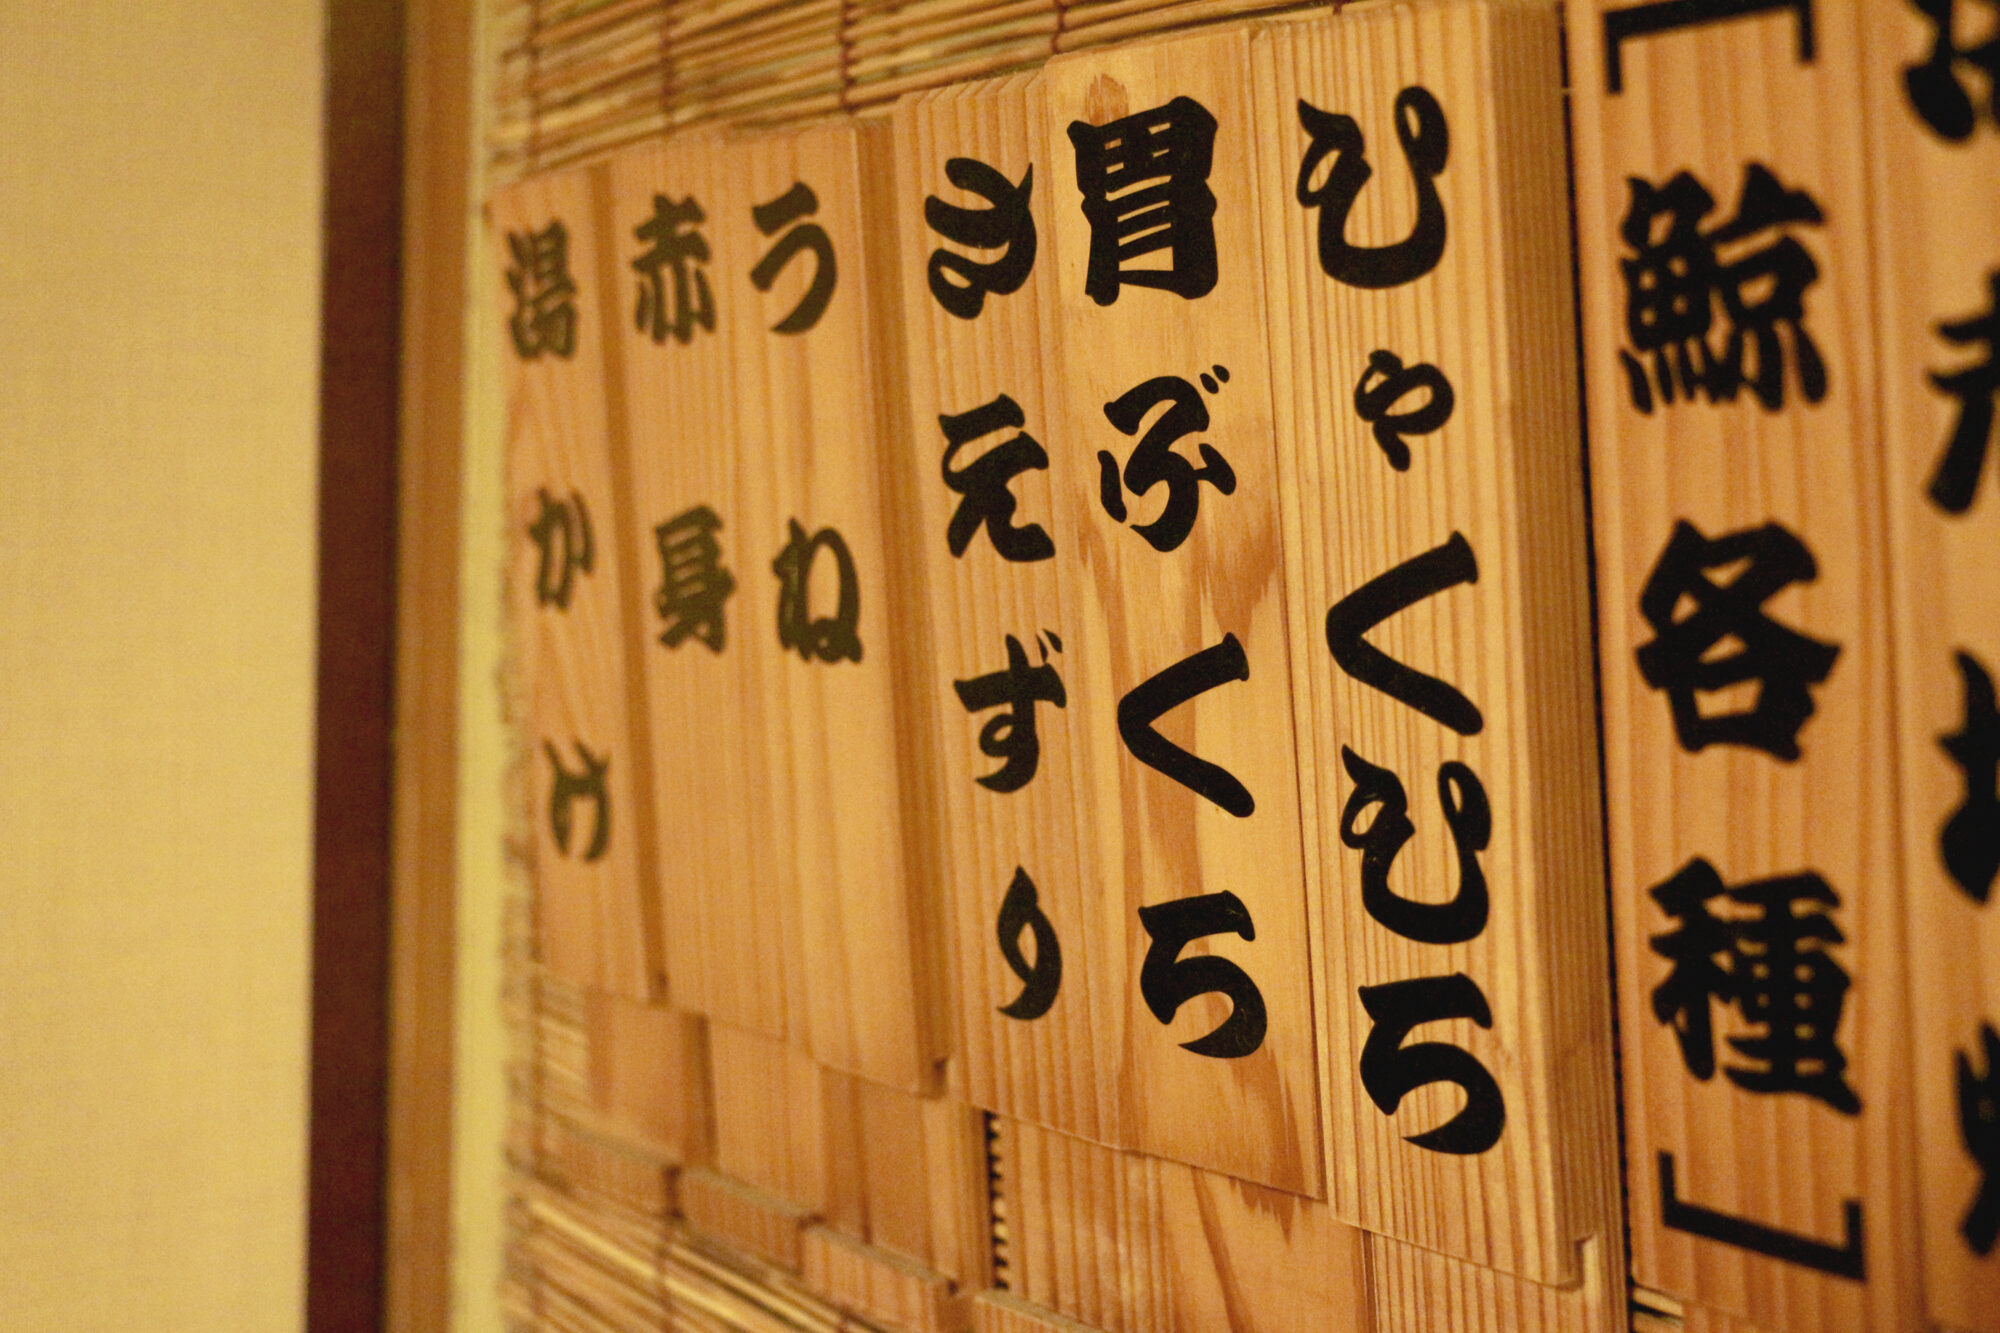 [鯨各種]
ひゃくひろ
胃ぶくろ
さえずり
うね
赤身
湯かけ